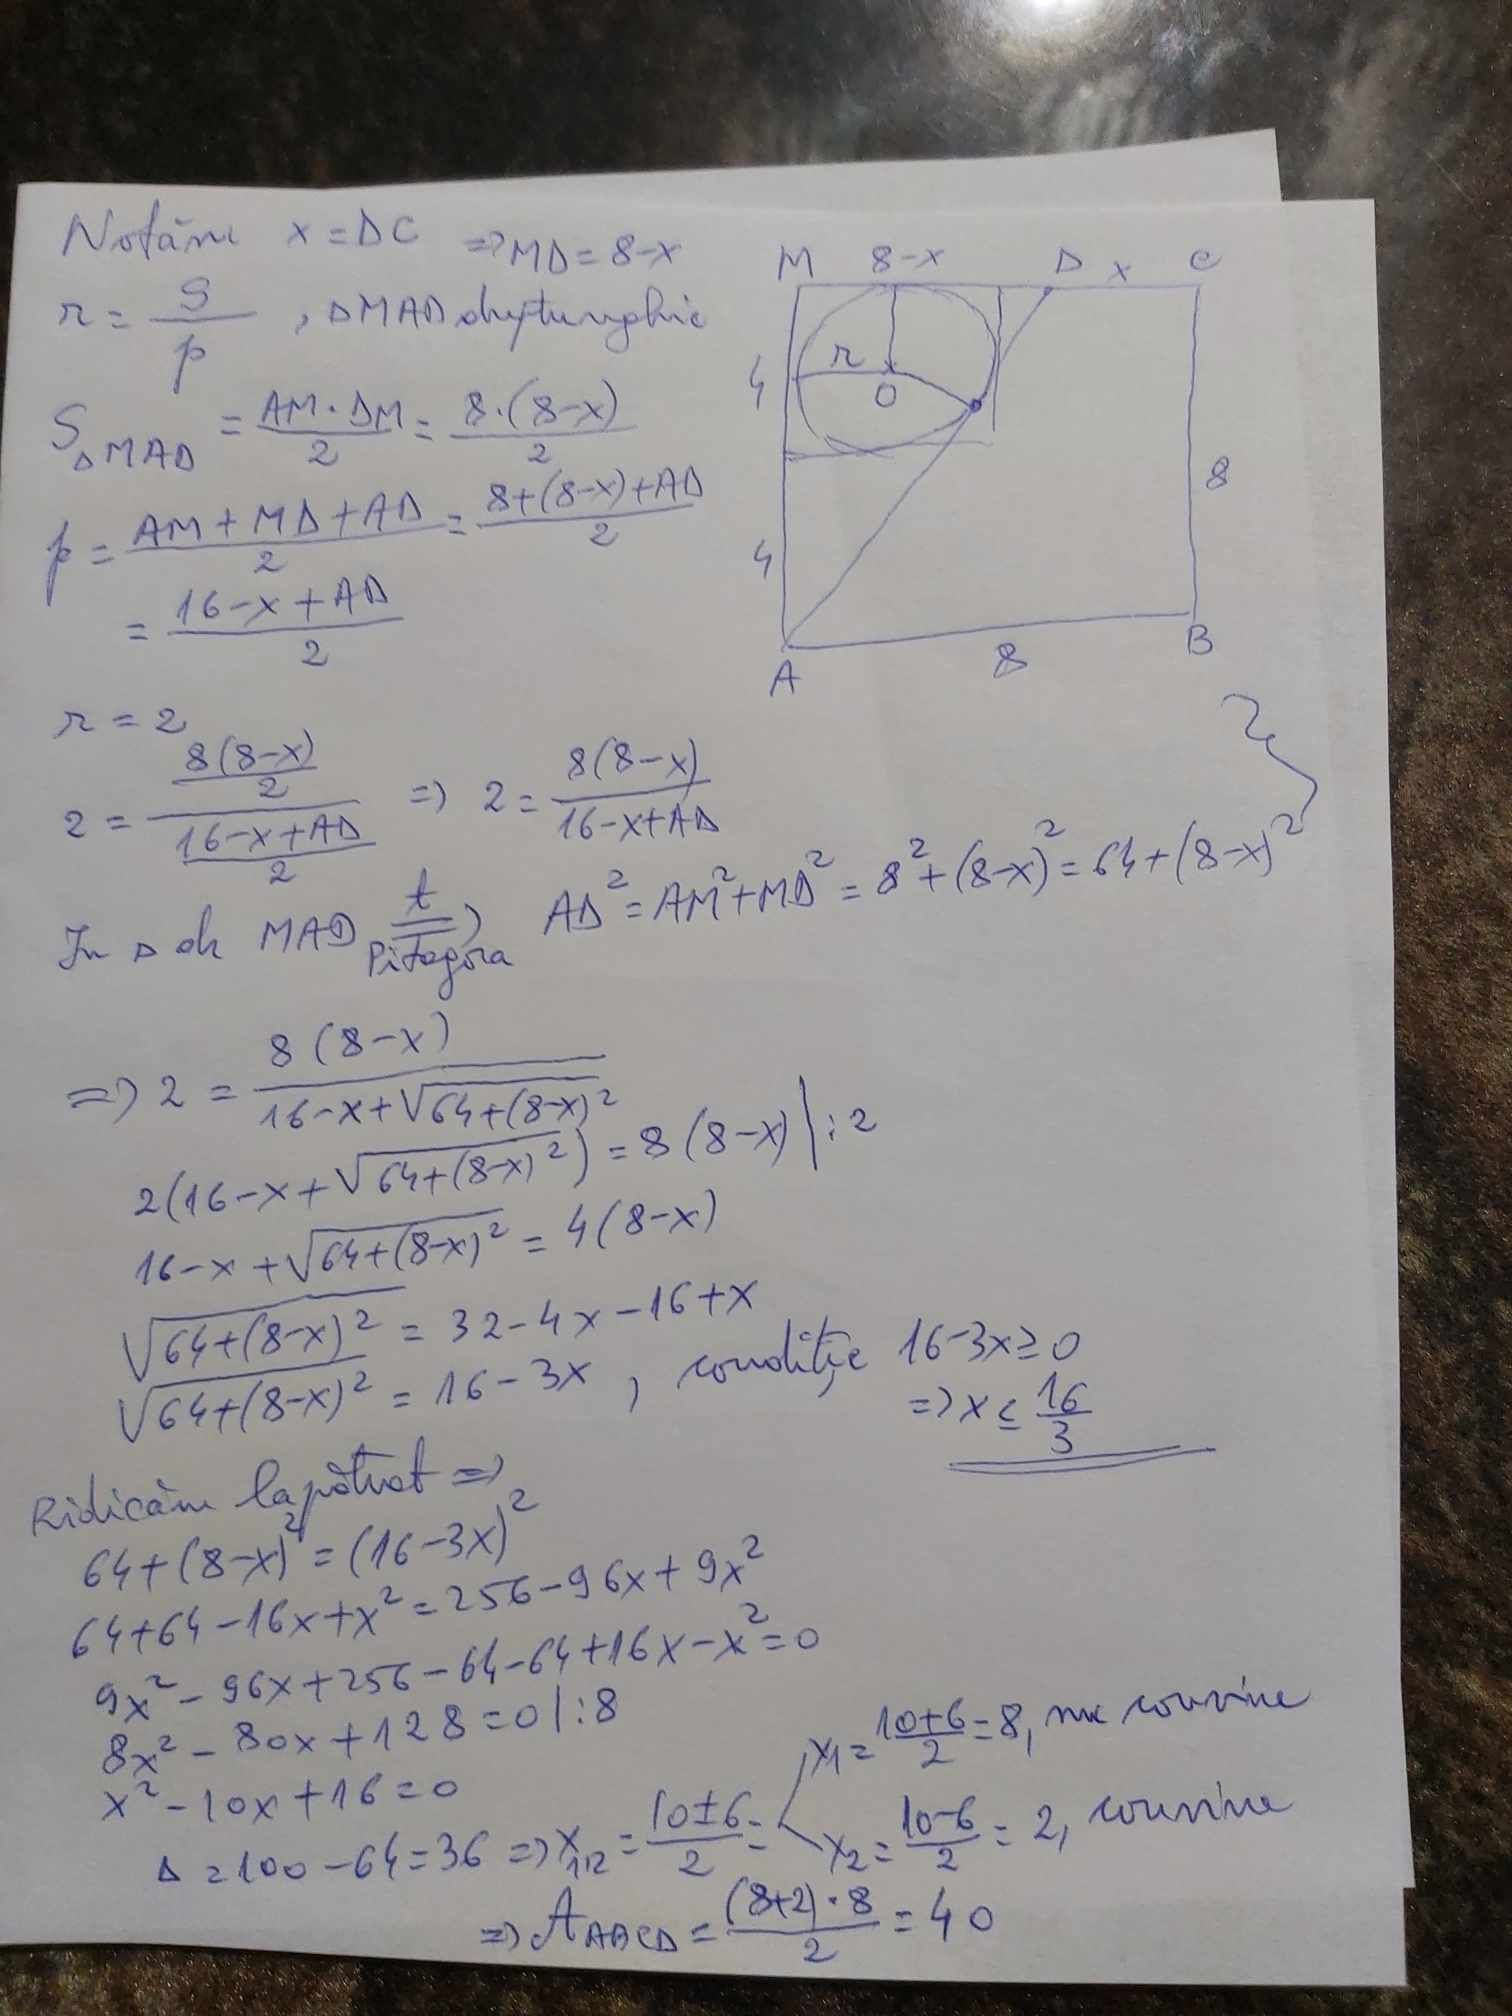 Notăm x = DC => MD = 8-x
r = S/p , ΔMAD dreptunghic
S_ΔMAD = AM·DM/2 = 8·(8-x)/2
p = (AM+MD+AD)/2 = (8+(8-x)+AD)/2
= (16-x+AD)/2
M 8-x D x C
4 r O
8
4
A 8 B
r = 2
2 = (8(8-x)/2)/((16-x+AD)/2) => 2 = 8(8-x)/(16-x+AD)
În Δ dr MAD t Pitagora => AD² = AM²+MD² = 8²+(8-x)² = 64+(8-x)²
=> 2 = 8(8-x)/(16-x+√(64+(8-x)²))
2(16-x+√(64+(8-x)²)) = 8(8-x) |:2
16-x+√(64+(8-x)²) = 4(8-x)
√(64+(8-x)²) = 32-4x-16+x
√(64+(8-x)²) = 16-3x , condiție 16-3x≥0
=> x ≤ 16/3
Ridicăm la pătrat =>
64+(8-x)² = (16-3x)²
64+64-16x+x² = 256-96x+9x²
9x²-96x+256-64-64+16x-x² = 0
8x²-80x+128 = 0 |:8
x²-10x+16 = 0
Δ = 100-64 = 36 => x₁,₂ = (10±6)/2 =
x₁ = (10+6)/2 = 8, nu convine
x₂ = (10-6)/2 = 2, convine
=> A_ABCD = (8+2)·8/2 = 40